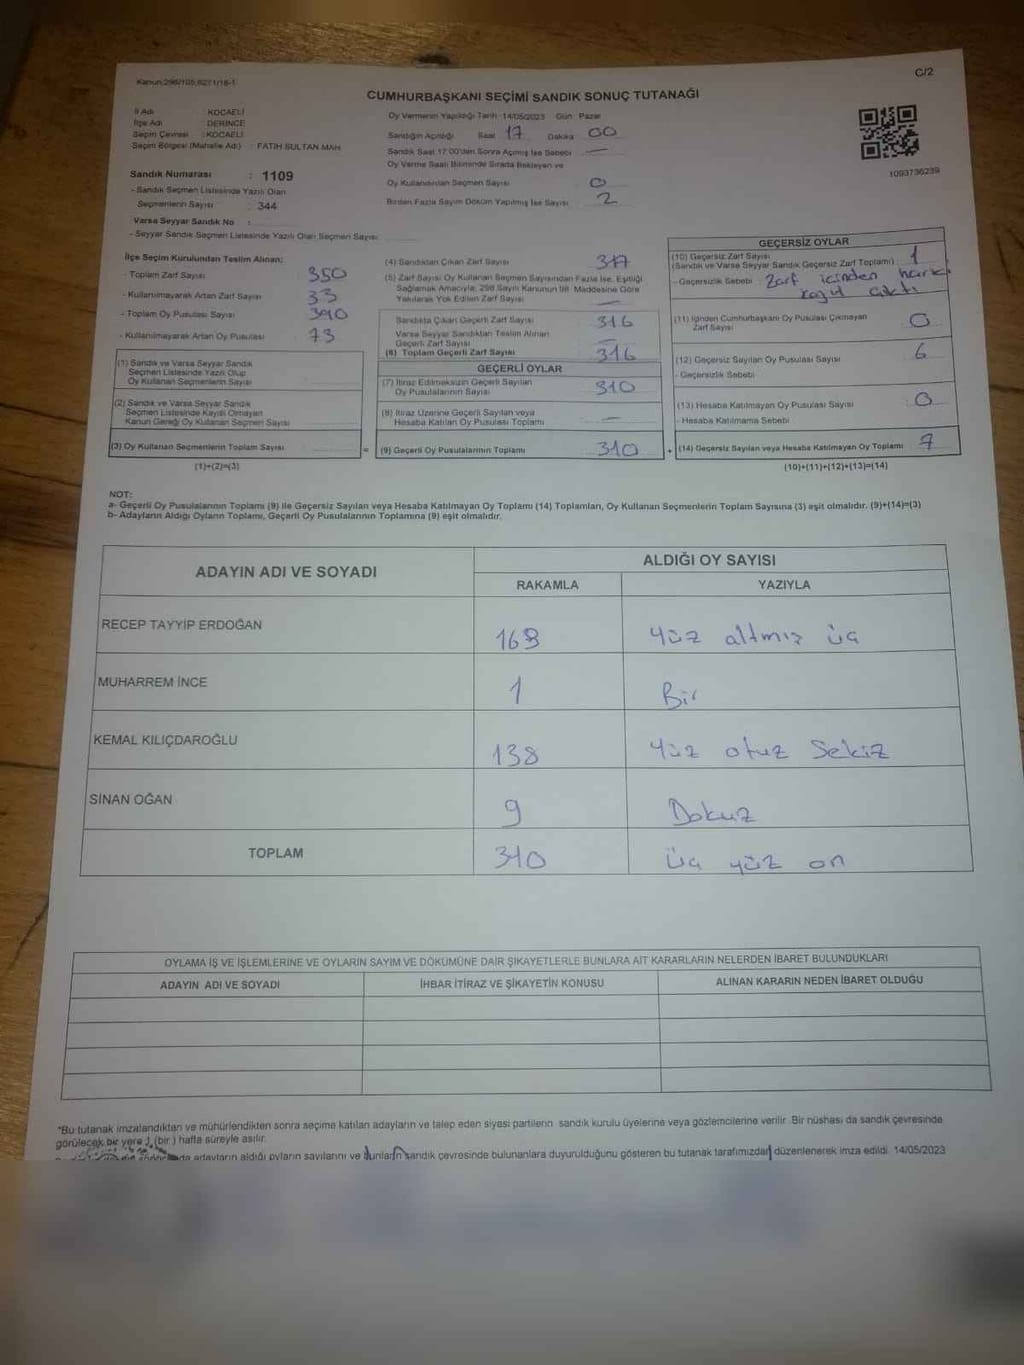 Kanun:298/105,6271/18-1
C/2
CUMHURBAŞKANI SEÇİMİ SANDIK SONUÇ TUTANAĞI
İl Adı : KOCAELİ
İlçe Adı : DERİNCE
Seçim Çevresi : KOCAELİ
Seçim Bölgesi (Mahalle Adı) : FATIH SULTAN MAH
Sandık Numarası : 1109
- Sandık Seçmen Listesinde Yazılı Olan
Seçmenlerin Sayısı : 344
Varsa Seyyar Sandık No :
- Seyyar Sandık Seçmen Listesinde Yazılı Olan Seçmen Sayısı
Oy Vermenin Yapıldığı Tarih :14/05/2023 Gün : Pazar
Sandığın Açıldığı Saat 17 Dakika 00
Sandık Saat 17:00'den Sonra Açılmış İse Sebebi —
Oy Verme Saati Bitiminde Sırada Bekleyen ve
Oy Kullandırılan Seçmen Sayısı 0
Birden Fazla Sayım Döküm Yapılmış İse Sayısı 2
1093736239
İlçe Seçim Kurulundan Teslim Alınan;
- Toplam Zarf Sayısı 350
- Kullanılmayarak Artan Zarf Sayısı 33
- Toplam Oy Pusulası Sayısı 390
- Kullanılmayarak Artan Oy Pusulası 73
(1) Sandık ve Varsa Seyyar Sandık
Seçmen Listesinde Yazılı Olup
Oy Kullanan Seçmenlerin Sayısı
(2) Sandık ve Varsa Seyyar Sandık
Seçmen Listesinde Kaydı Olmayan
Kanun Gereği Oy Kullanan Seçmen Sayısı
(3) Oy Kullanan Seçmenlerin Toplam Sayısı
(1)+(2)=(3)
(4) Sandıktan Çıkan Zarf Sayısı 317
(5) Zarf Sayısı Oy Kullanan Seçmen Sayısından Fazla İse, Eşitliği
Sağlamak Amacıyla, 298 Sayılı Kanunun 98. Maddesine Göre
Yakılarak Yok Edilen Zarf Sayısı —
Sandıkta Çıkan Geçerli Zarf Sayısı 316
Varsa Seyyar Sandıktan Teslim Alınan
Geçerli Zarf Sayısı —
(6) Toplam Geçerli Zarf Sayısı 316
GEÇERLİ OYLAR
(7) İtiraz Edilmeksizin Geçerli Sayılan
Oy Pusulalarının Sayısı 310
(8) İtiraz Üzerine Geçerli Sayılan veya
Hesaba Katılan Oy Pusulası Toplamı —
= (9) Geçerli Oy Pusulalarının Toplamı 310
GEÇERSİZ OYLAR
(10) Geçersiz Zarf Sayısı
(Sandık ve Varsa Seyyar Sandık Geçersiz Zarf Toplamı) 1
- Geçersizlik Sebebi : Zarf içinden
çıktı
(11) İçinden Cumhurbaşkanı Oy Pusulası Çıkmayan
Zarf Sayısı 0
(12) Geçersiz Sayılan Oy Pusulası Sayısı 6
- Geçersizlik Sebebi
(13) Hesaba Katılmayan Oy Pusulası Sayısı 0
- Hesaba Katılmama Sebebi
+ (14) Geçersiz Sayılan veya Hesaba Katılmayan Oy Toplamı 7
(10)+(11)+(12)+(13)=(14)
NOT:
a- Geçerli Oy Pusulalarının Toplamı (9) ile Geçersiz Sayılan veya Hesaba Katılmayan Oy Toplamı (14) Toplamları, Oy Kullanan Seçmenlerin Toplam Sayısına (3) eşit olmalıdır. (9)+(14)=(3)
b- Adayların Aldığı Oyların Toplamı, Geçerli Oy Pusulalarının Toplamına (9) eşit olmalıdır.
ADAYIN ADI VE SOYADI
ALDIĞI OY SAYISI
RAKAMLA YAZIYLA
RECEP TAYYİP ERDOĞAN 163 Yüz altmış üç
MUHARREM İNCE 1 Bir
KEMAL KILIÇDAROĞLU 138 Yüz otuz Sekiz
SİNAN OĞAN 9 Dokuz
TOPLAM 310 üç yüz on
OYLAMA İŞ VE İŞLEMLERİNE VE OYLARIN SAYIM VE DÖKÜMÜNE DAİR ŞİKAYETLERLE BUNLARA AİT KARARLARIN NELERDEN İBARET BULUNDUKLARI
ADAYIN ADI VE SOYADI İHBAR İTİRAZ VE ŞİKAYETİN KONUSU ALINAN KARARIN NEDEN İBARET OLDUĞU
*Bu tutanak imzalandıktan ve mühürlendikten sonra seçime katılan adayların ve talep eden siyasi partilerin sandık kurulu üyelerine veya gözlemcilerine verilir. Bir nüshası da sandık çevresinde
görülecek bir yere 1 (bir) hafta süreyle asılır.
adayların aldığı oyların sayılarını ve bunların sandık çevresinde bulunanlara duyurulduğunu gösteren bu tutanak tarafımızdan düzenlenerek imza edildi. 14/05/2023